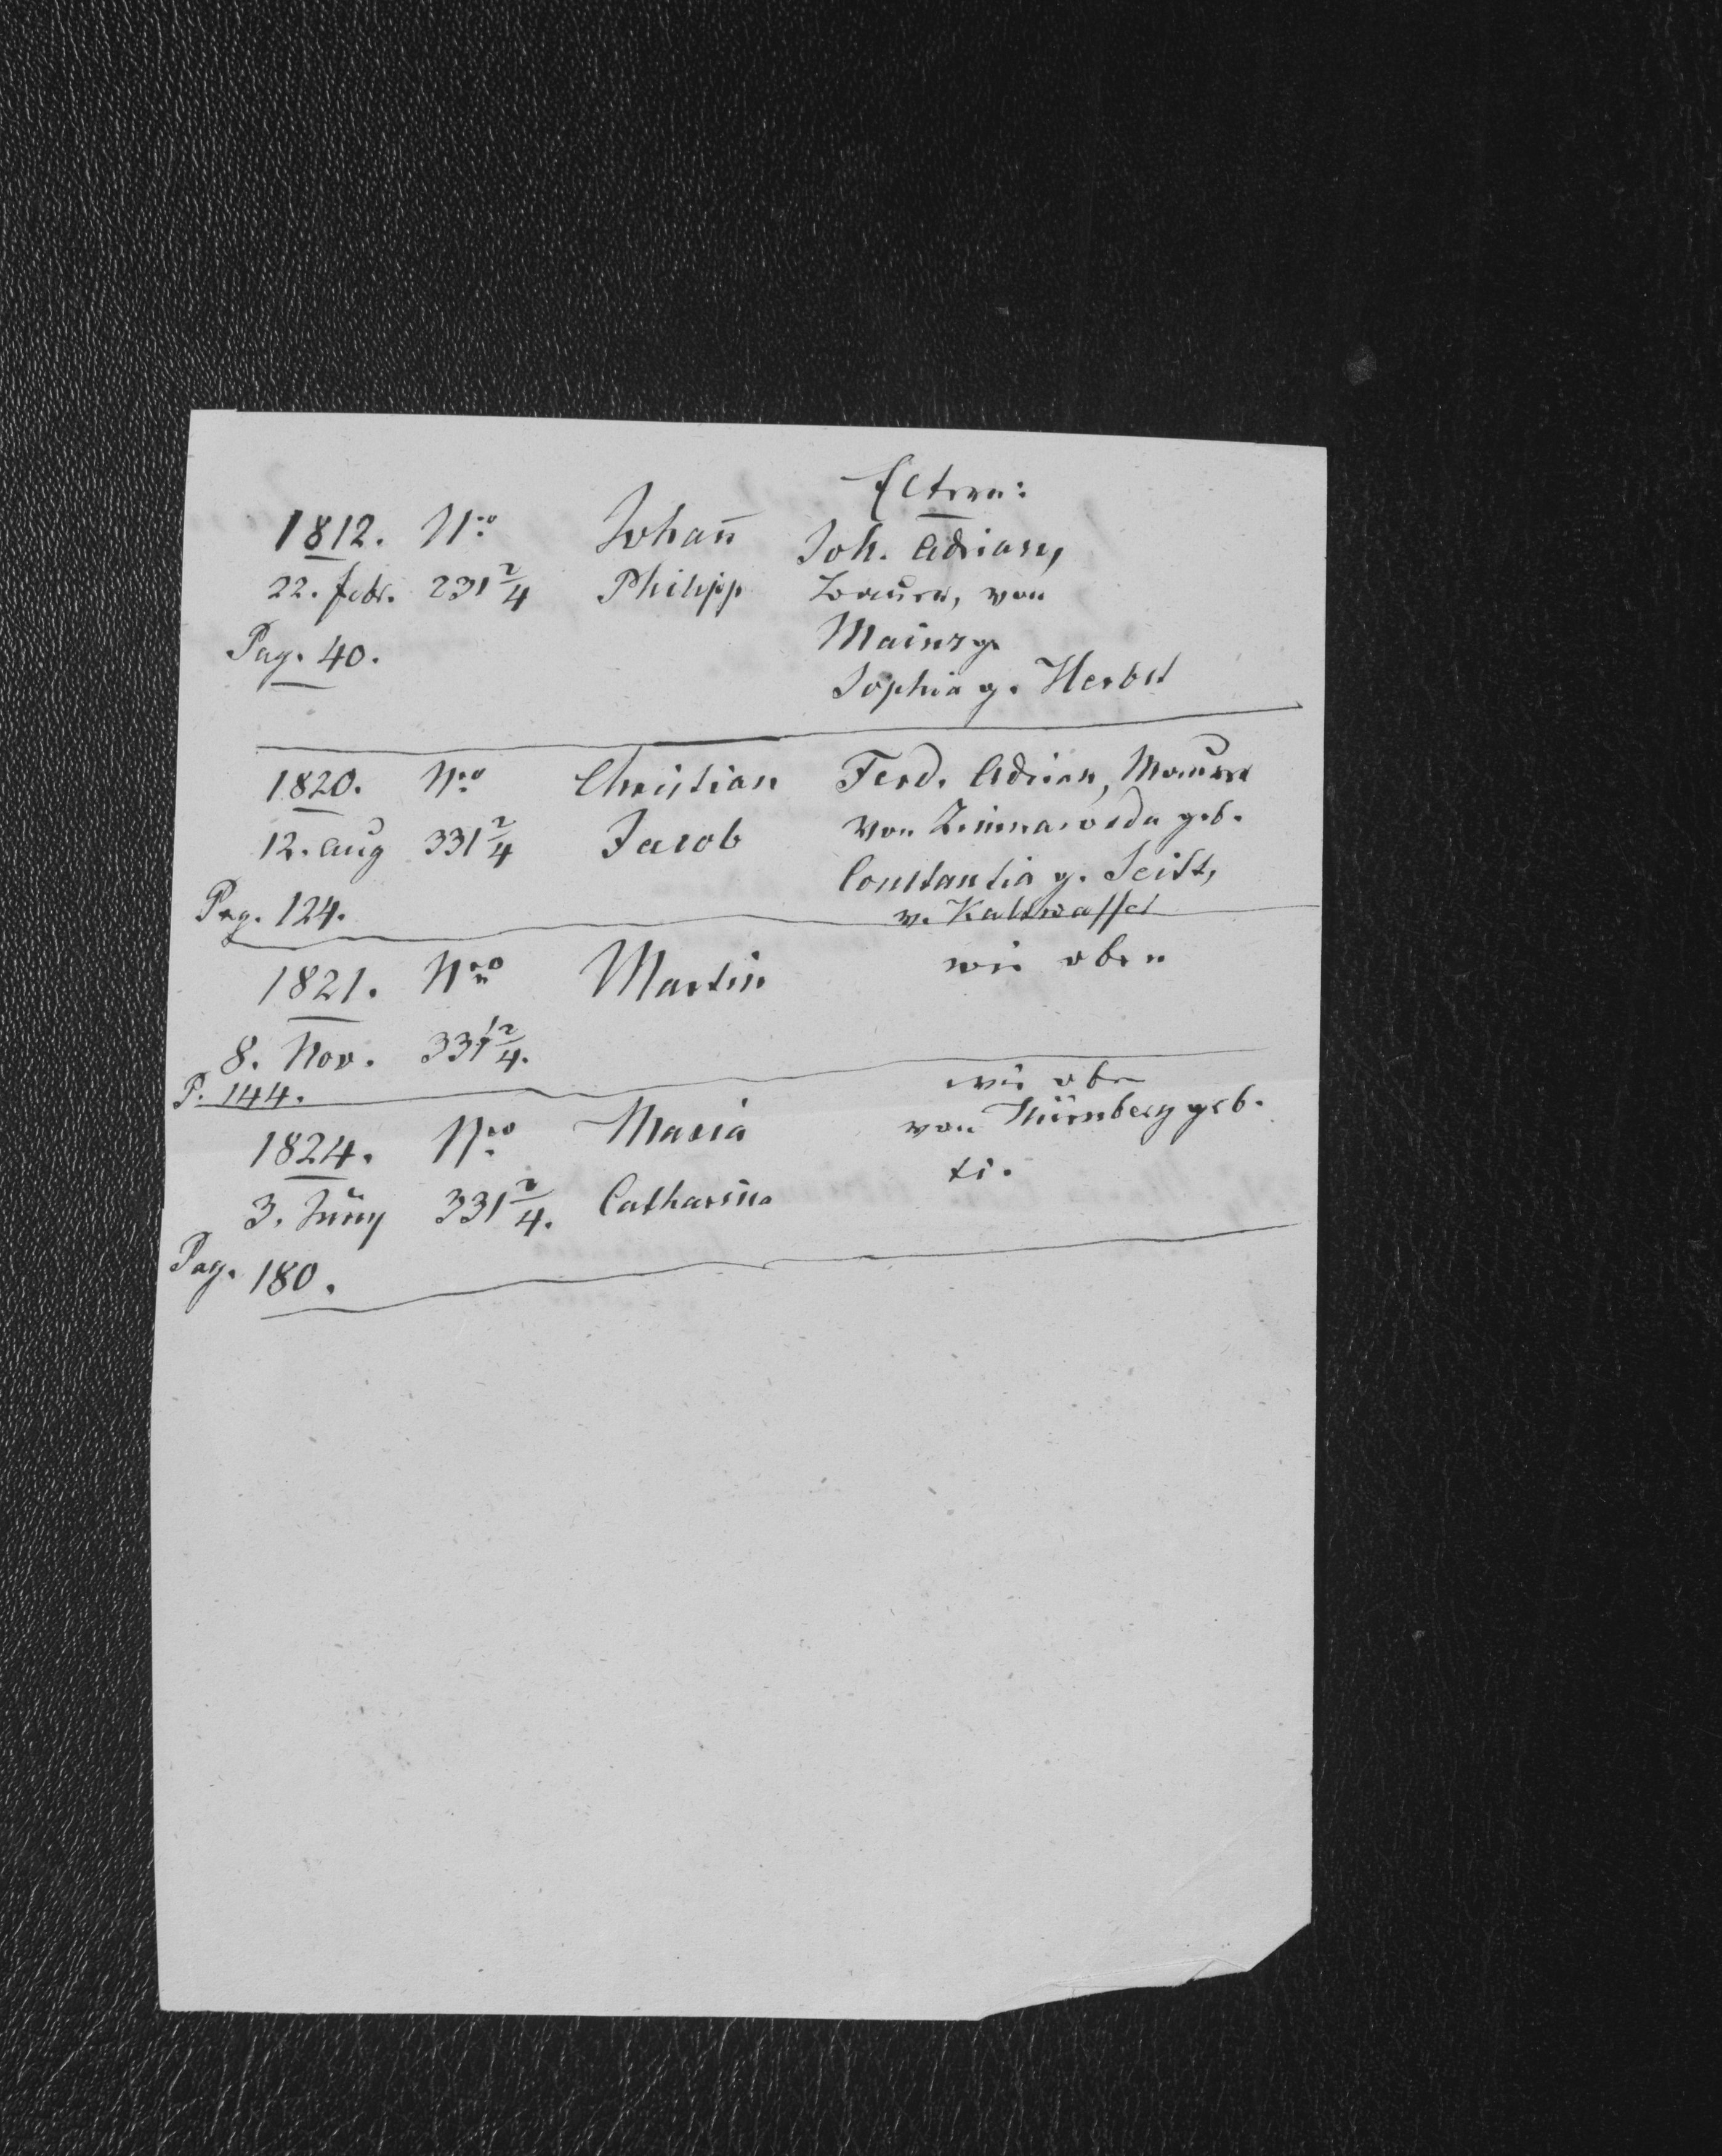 Eltern:
1812. Nro Johan̄ Joh. Adrian,
22. Febr. 231 2/4 Philipp Bauer, von
Pag. 40. Mainz g.
Sophia g. Herbst
1820. Nro Christian Ferd. Adrian, Maurer
12. Aug 331 2/4 Jacob von geb.
Constantia g. Seist,
Pag. 124. v. Kaltwasser
1821. Nro Martin wie oben
8. Nov. 331 2/4.
P. 144. wie oben
1824. Nro Maria von Nürnberg geb.
3. Juny 331 2/4. Catharina
Pag. 180.